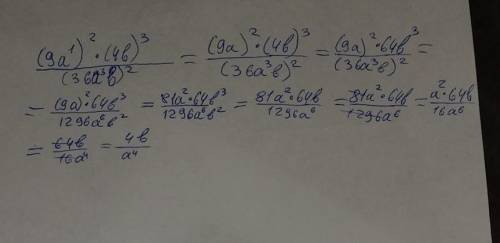 (9a¹)²·(4в)³/(36a³в)² = (9a)²·(4в)³/(36a³в)² = (9a)²·64в³/(36a³в)² =
= (9a)²·64в³/1296a⁶в² = 81a²·64в³/1296a⁶в² = 81a²·64в/1296a⁶ = 81a²·64в/1296a⁶ = a²·64в/16a⁶
= 64в/16a⁴ = 4в/a⁴